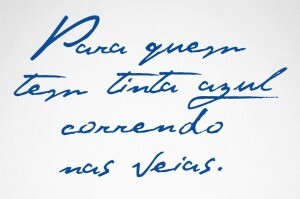 Para quem
tem tinta azul
correndo
nas veias.